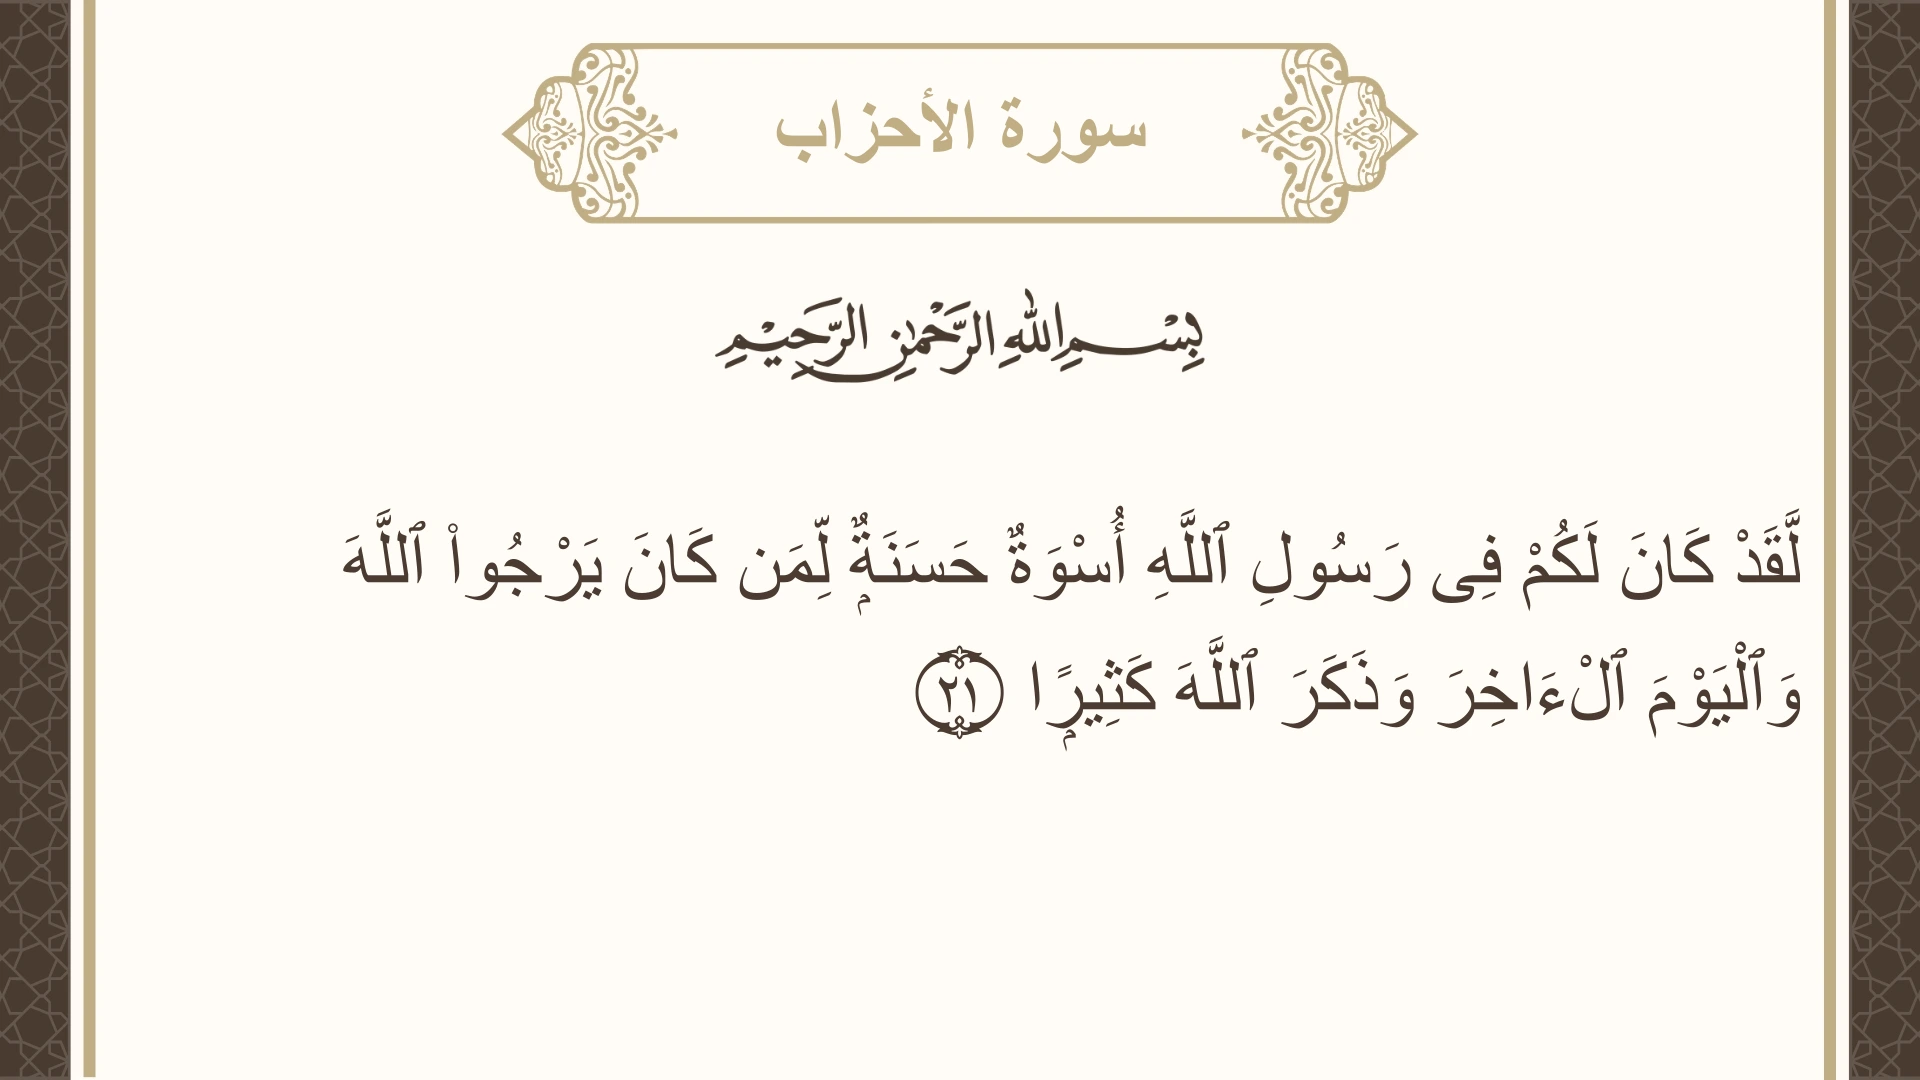 سورة الأحزاب
بِسْمِ اللهِ الرَّحْمٰنِ الرَّحِيْمِ
لَّقَدْ كَانَ لَكُمْ فِى رَسُولِ ٱللَّهِ أُسْوَةٌ حَسَنَةٌۭ لِّمَن كَانَ يَرْجُوا۟ ٱللَّهَ
وَٱلْيَوْمَ ٱلْءَاخِرَ وَذَكَرَ ٱللَّهَ كَثِيرًۭا ٢١